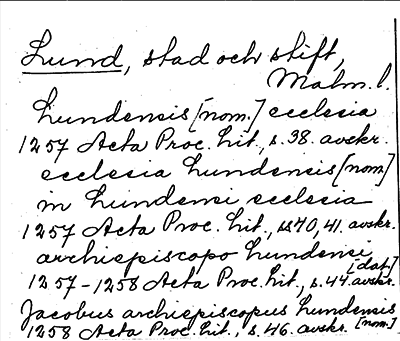 Lund, stad och stift,
Malm. l.
Lundensis [nom.] ecclesia
1257 Acta Proc. Lit., s. 38. avskr.
ecclesia Lundensis [nom]
in Lundensi ecclesia
1257 Acta Proc. Lit., ss 40, 41. avskr.
archiepiscopo Lundensi
[dat.]
1257-1258 Acta Proc. Lit., s. 44. avskr.
Jacobus archiepiscopus Lundensis
[nom.]
1258 Acta Proc. Lit., s. 46. avskr.